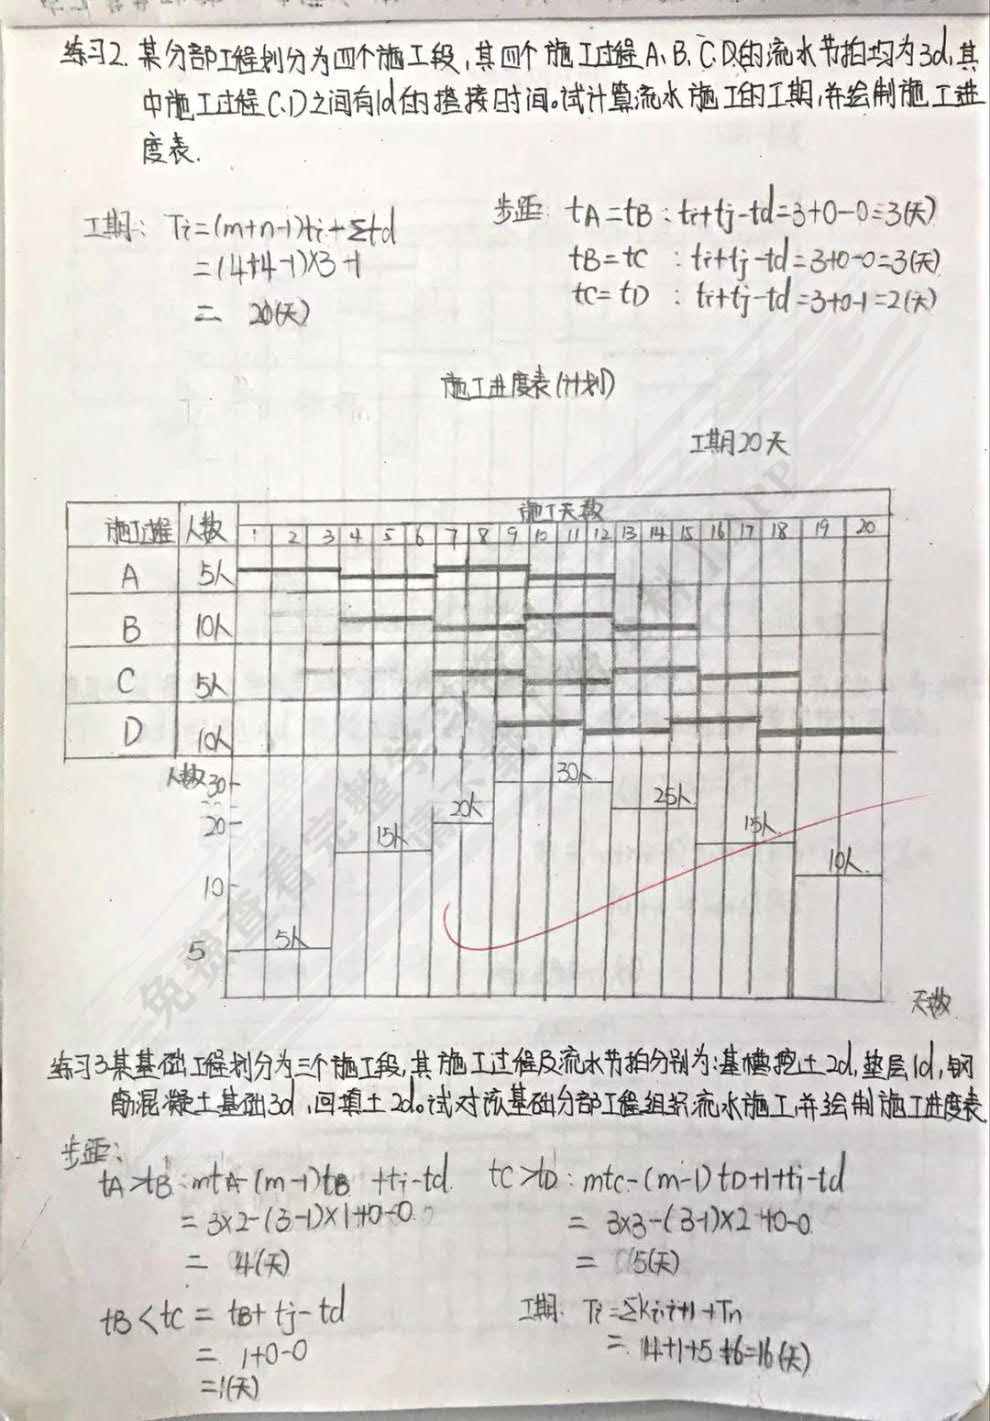 练习2. 某分部工程划分为四个施工段,其四个施工过程A、B、C、D的流水节拍均为3d,其
中施工过程C、D之间有1d的搭接时间。试计算流水施工的工期,并绘制施工进
度表.
工期: Ti=(m+n-1)ti+Σtd
=(4+4-1)×3-1
= 20(天)
步距: tA=tB : ti+tj-td=3+0-0=3(天)
tB=tC : ti+tj-td=3+0-0=3(天)
tC=tD : ti+tj-td=3+0-1=2(天)
施工进度表(计划)
工期20天
施工过程 人数 施工天数
1 2 3 4 5 6 7 8 9 10 11 12 13 14 15 16 17 18 19 20
A 5人
B 10人
C 5人
D 10人
人数
30
20
10
5
5人 15人 20人 30人 25人 15人 10人
天数
练习3.某基础工程划分为三个施工段,其施工过程及流水节拍分别为:基槽挖土2d,垫层1d,钢
筋混凝土基础3d,回填土2d。试对该基础分部工程组织流水施工,并绘制施工进度表
步距:
tA>tB:mtA-(m-1)tB +tj-td
=3×2-(3-1)×1+0-0
= 4(天)
tB<tC = tB+tj-td
= 1+0-0
=1(天)
tC>tD:mtc-(m-1)tD+1+tj-td
= 3×3-(3-1)×2+0-0
= 5(天)
工期: Ti=Σki,i+1+Tn
=4+1+5+6=16(天)